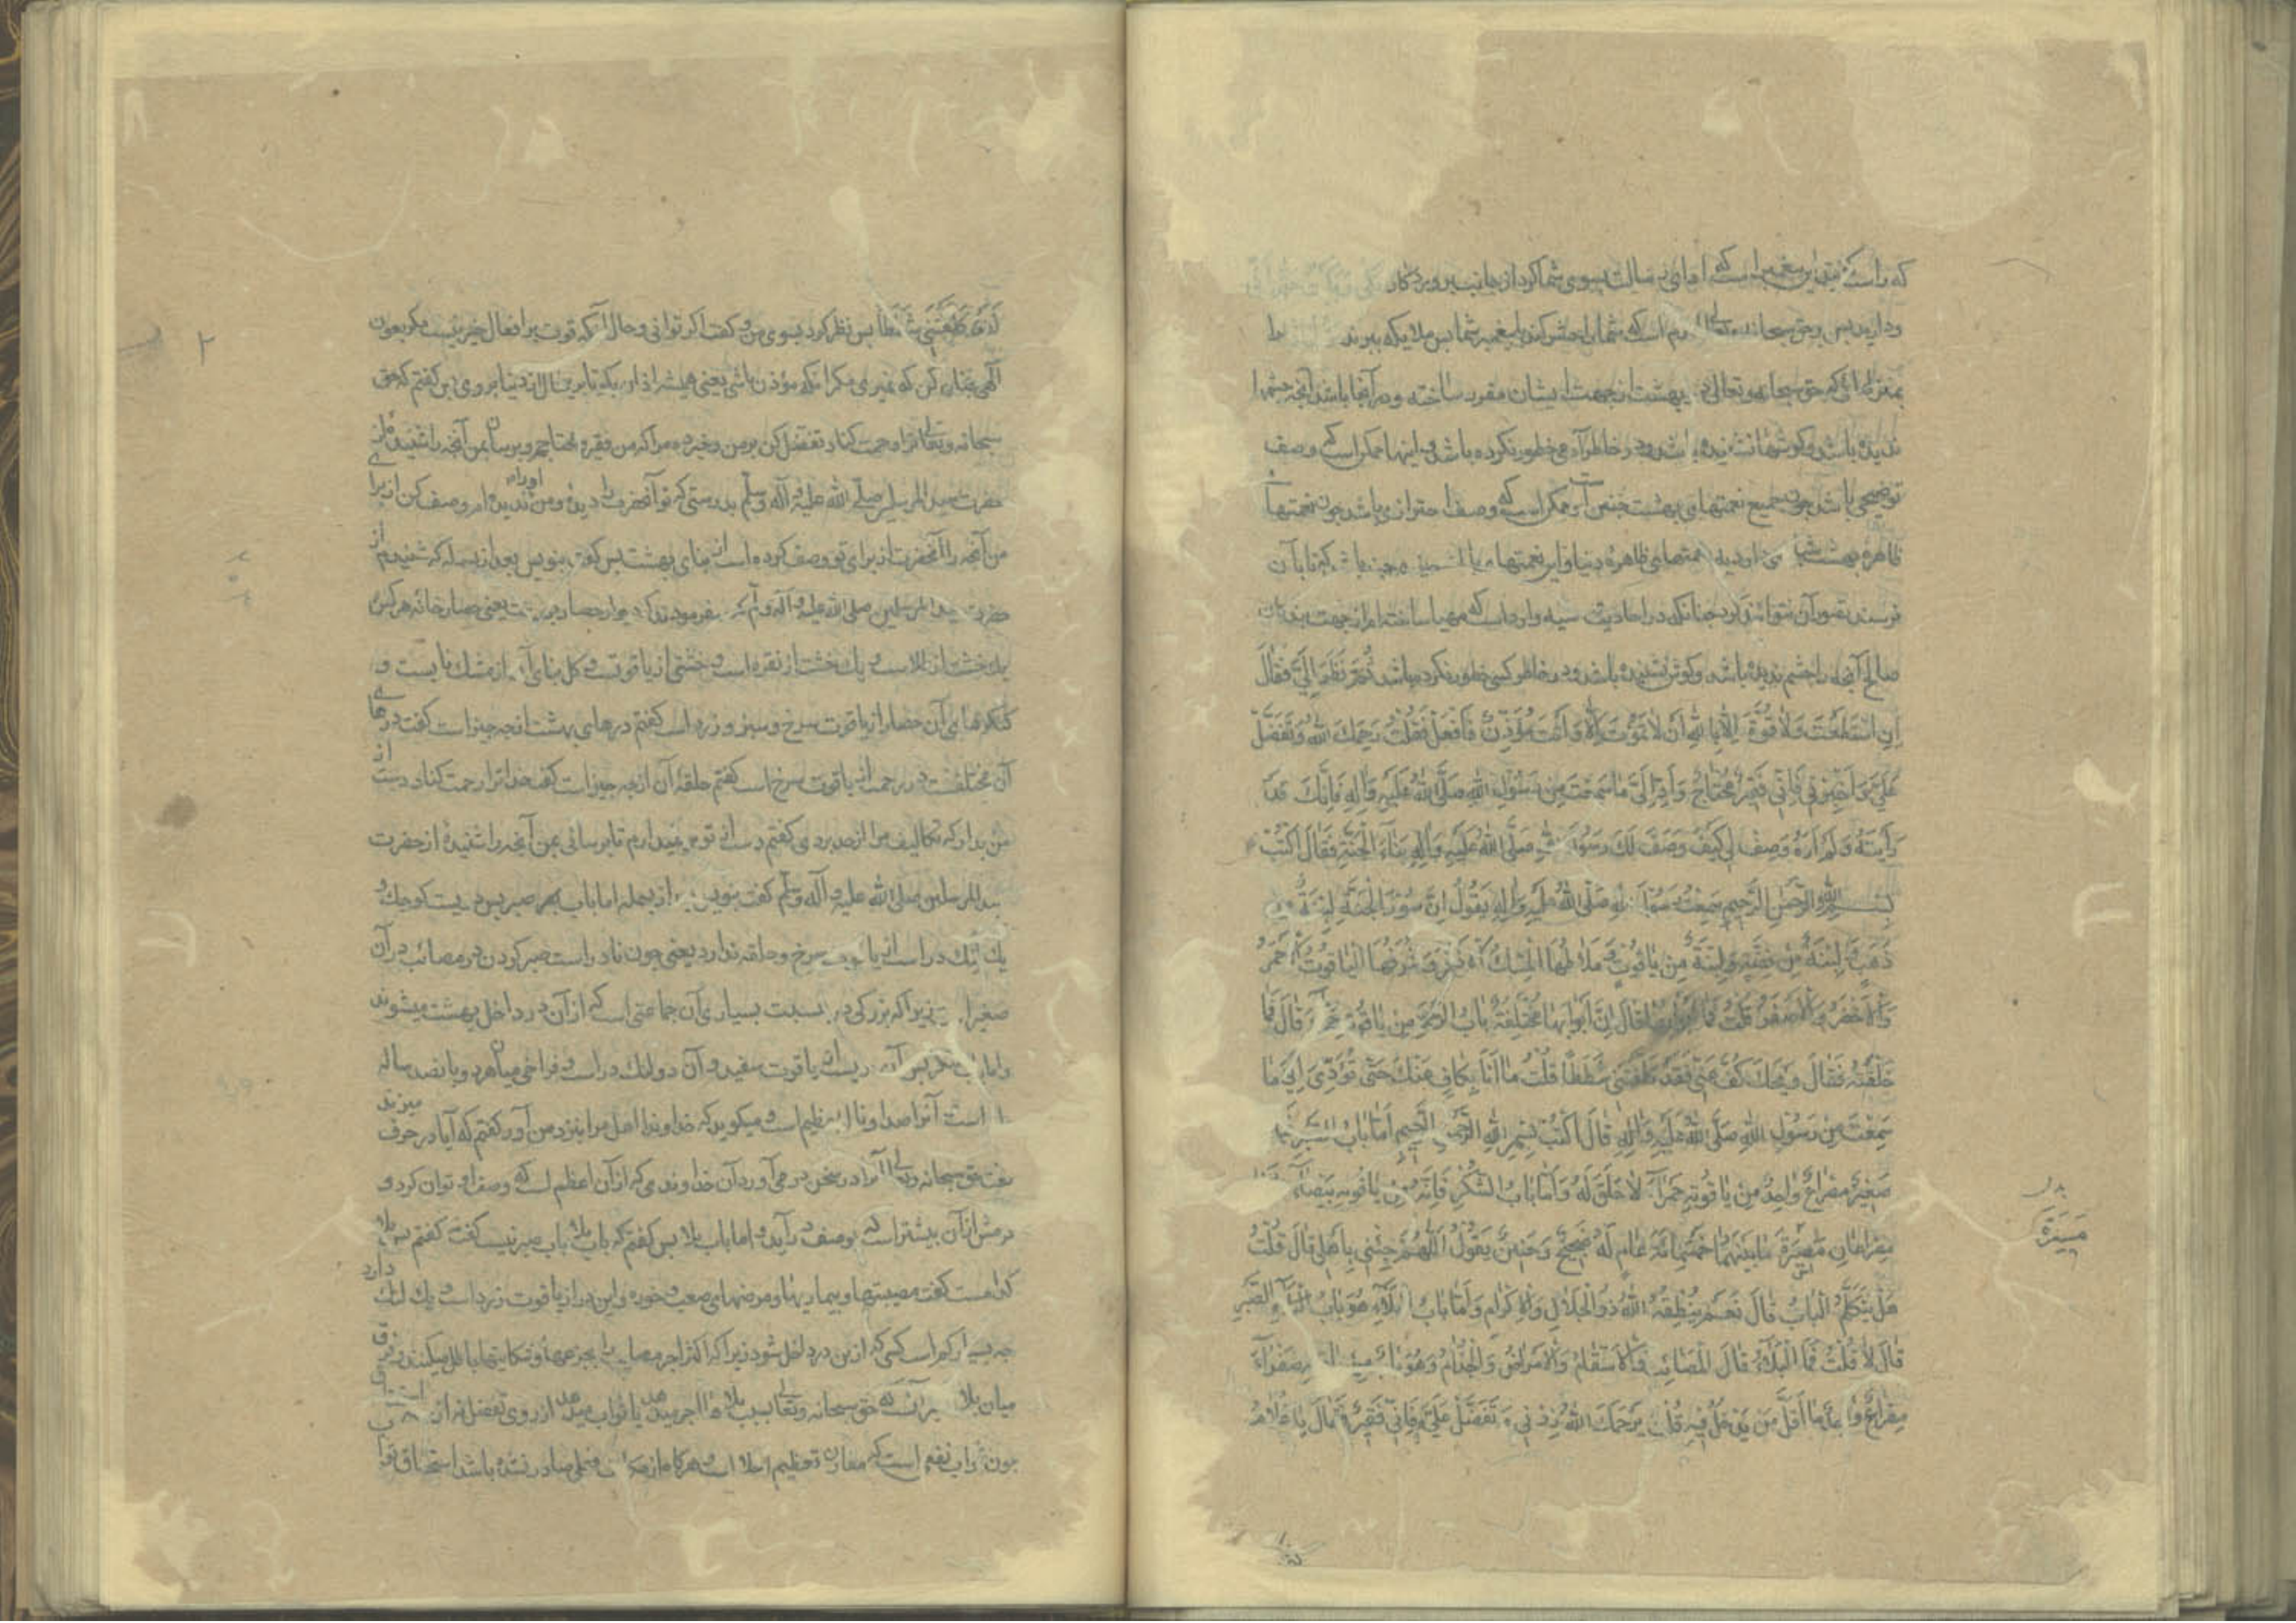 که راست گفت این پیغمبر است که ادای رسالت بسوی شما کرد از جانب پروردکار
ودارید پس وحق سبحانه وتعالی است که شما را حشر کند با پیغمبر شما پس ملایکه ببرند
بمنزلهائی که حق سبحانه وتعالی در بهشت از جهت ایشان مقرر ساخته ودر آنجا باشد آنچه چشمها
ندیده باشد وکوشها نشنیده باشد ودر خاطر آدمی خطور نکرده باشد واینها ممکن است که وصف
توضیحی باشد چون جمیع نعمتهای بهشت چنین است وممکن است که وصف احترازی باشد چون نعمتهاء
ظاهره بهشت نعمتهای ظاهرهٔ دنیا واین نعمتها
نرسند تصور آن نتوانند کرد چنانکه در احادیث وارد است که مهیا ساخته‌ام از جهت بندکان
صالح آنچه را چشم ندیده باشد وکوش نشنیده باشد ودر خاطر کسی خطور نکرده باشد ثُمَّ نَظَرَ اِلَیَّ فَقٰالَ
اِنِ اسْتَطَعْتَ وَلاٰ قُوَّةَ اِلّاٰ بِاللهِ اَنْ لاٰ تَمُوْتَ اِلّاٰ وَاَنْتَ مُؤَذِّنٌ فَافْعَلْ فَقُلْتُ یَرْحَمُكَ اللهُ وَتَفَضَّلْ
عَلَیَّ وَاَخْبِرْنِی فَاِنِّی فَقِیْرٌ مُحْتٰاجٌ وَاَدِّ اِلَیَّ مٰا سَمِعْتَ مِنْ رَسُوْلِ اللهِ صَلَّی اللهُ عَلَیْهِ وَاٰلِهِ فَاِنَّكَ قَدْ
رَاَیْتَهُ وَلَمْ اَرَهُ وَصِفْ لِی کَیْفَ وَصَفَ لَكَ رَسُوْلُ اللهِ صَلَّی اللهُ عَلَیْهِ وَاٰلِهِ بِنٰاءَ الْجَنَّةِ فَقٰالَ اُکْتُبْ
بِسْمِ اللهِ الرَّحْمٰنِ الرَّحِیْمِ سَمِعْتُ رَسُوْلَ اللهِ صَلَّی اللهُ عَلَیْهِ وَاٰلِهِ یَقُوْلُ اِنَّ سُوْرَ الْجَنَّةِ لَبِنَةٌ مِنْ
ذَهَبٍ وَلَبِنَةٌ مِنْ فِضَّةٍ وَلَبِنَةٌ مِنْ یٰاقُوْتٍ وَمَلاٰطُهَا الْمِسْكُ الْاَذْفَرُ وَشُرَفُهَا الْیٰاقُوْتُ الْاَحْمَرُ
وَالْاَخْضَرُ وَالْاَصْفَرُ قُلْتُ فَمٰا اَبْوٰابُهٰا قٰالَ اِنَّ اَبْوٰابَهٰا مُخْتَلِفَةٌ بٰابُ الرَّحْمَةِ مِنْ یٰاقُوْتَةٍ حَمْرٰاءَ قٰالَ فَمٰا
حَلْقَتُهُ فَقٰالَ وَیْحَكَ کُفَّ عَنِّی فَقَدْ کَلَّفْتَنِی شَطَطًا قُلْتُ مٰا اَنَا بِکٰافٍّ عَنْكَ حَتّٰی تُؤَدِّیَ اِلَیَّ مٰا
سَمِعْتَ مِنْ رَسُوْلِ اللهِ صَلَّی اللهُ عَلَیْهِ وَاٰلِهِ قٰالَ اُکْتُبْ بِسْمِ اللهِ الرَّحْمٰنِ الرَّحِیْمِ اَمّٰا بٰابُ الصَّبْرِ
صَغِیْرٌ مِصْرٰاعٌ وٰاحِدٌ مِنْ یٰاقُوْتَةٍ حَمْرٰاءَ لاٰ حَلَقَ لَهُ وَاَمّٰا بٰابُ الشُّکْرِ فَاِنَّهُ مِنْ یٰاقُوْتَةٍ بَیْضٰاءَ
مِصْرٰاعٰانِ مَسِیْرَةُ مٰا بَیْنَهُمٰا خَمْسُمِائَةِ عٰامٍ لَهُ ضَجِیْجٌ وَحَنِیْنٌ یَقُوْلُ اَللّٰهُمَّ جِئْنِی بِاَهْلِی قٰالَ قُلْتُ
هَلْ یَتَکَلَّمُ الْبٰابُ قٰالَ نَعَمْ یُنْطِقُهُ اللهُ ذُوالْجَلاٰلِ وَالْاِکْرٰامِ وَاَمّٰا بٰابُ الْبَلاٰءِ هُوَ بٰابُ الصَّبْرِ
قٰالَ لاٰ قُلْتُ فَمَا الْبَلاٰءُ قٰالَ الْمَصٰائِبُ وَالْاَسْقٰامُ وَالْاَمْرٰاضُ وَالْجُذٰامُ وَهُوَ بٰابٌ مِنْ صَفْرٰاءَ
مِصْرٰاعٌ وٰاحِدٌ مٰا اَقَلَّ مَنْ یَدْخُلُ فِیْهِ قُلْتُ یَرْحَمُكَ اللهُ زِدْنِی وَتَفَضَّلْ عَلَیَّ فَاِنِّی فَقِیْرٌ فَقٰالَ یٰا غُلاٰمُ
بدل
مَسِیْرَةُ
لَقَدْ کَلَّفْتَنِی شَطَطًا پس نظر کرد بسوی من وکفت اکر توانی وحال آنکه قوت بر افعال خیر نیست مکر بعون
الهی چنان کن که نمیری مکر آنکه مؤذن باشی یعنی همیشه اذان بکو تا برین حال از دنیا بروی پس کفتم که حق
سبحانه وتعالی ترا رحمت کناد تفضل کن بر من وخبر ده مرا که من فقیر ومحتاجم وبرسان بمن آنچه را شنیدهٔ از
حضرت سید المرسلین صلّی الله علیه وآله وسلّم بدرستی که تو آنحضرت را دیدهٔ ومن او را ندیده‌ام ووصف کن از برای
من آنچه را آنحضرت از برای تو وصف کرده است از بنای بهشت پس کفت بنویس بعد از بسمله که شنیدم از
حضرت سید المرسلین صلی الله علیه وآله وسلم که میفرمودند که دیوار حصار بهشت یعنی حصار خانه هر کس
یك خشت از طلاست ویك خشت از نقره است وخشتی از یاقوتست وکل بنای آن از مشك نابست و
کنکرهای آن حصار از یاقوت سرخ وسبز وزرد است کفتم درهای بهشت از چه چیز است کفت درهای
آن مختلفست در رحمت از یاقوت سرخ است کفتم حلقهٔ آن از چه چیز است کفت خدا ترا رحمت کناد دست از
من بدار که تکالیف مرا از حد بردی کفتم دست از تو بر نمیدارم تا برسانی بمن آنچه را شنیدهٔ از حضرت
سید المرسلین صلی الله علیه وآله وسلم کفت بنویس بعد از بسمله اما باب صبر پس دریست کوچك و
یك لنك در است از یاقوت سرخ وحلقه ندارد یعنی چون نادر است صبر کردن در مصائب در آن
صغیر است زیرا که بزرکی در بسبب بسیاری آن جماعتی است که از آن در داخل بهشت میشوند
واما باب شکر پس آن دریست از یاقوت سفید وآن دو لنك در است وفراخی میان هر دو پانصد ساله
راه است آنرا صدا وناله عظیم است ومیکوید که خداوندا اهل مرا بنزد من آور کفتم که آیا در حرف میزند
کفت حق سبحانه وتعالی آنرا در سخن در می‌آورد آن خداوندی که از آن اعظم است که وصف او توان کرد و
کرمش از آن بیشتر است که بوصف درآید واما باب بلا پس کفتم که باب بلا باب صبر نیست کفت کفتم پس بلا
کدامست کفت مصیبتها وبیماریها ومرضهای صعب وخوره واین در از یاقوت زرد است ویك لنك دارد
چه بسیار کم است کسی که ازین در داخل شود زیرا که اکثر اجر مصایب را بجزعها وشکایتها باطل میکنند وفرق
میان بلا وصبر آنست که حق سبحانه وتعالی بسبب بلاها اجر میدهد یا ثواب میدهد از روی تفضل نه از استحقاق
چون ثواب نفع است که مقارن تعظیم اجلال است وهرکاه از فعلی صادر نشده باشد استحقاق ثواب